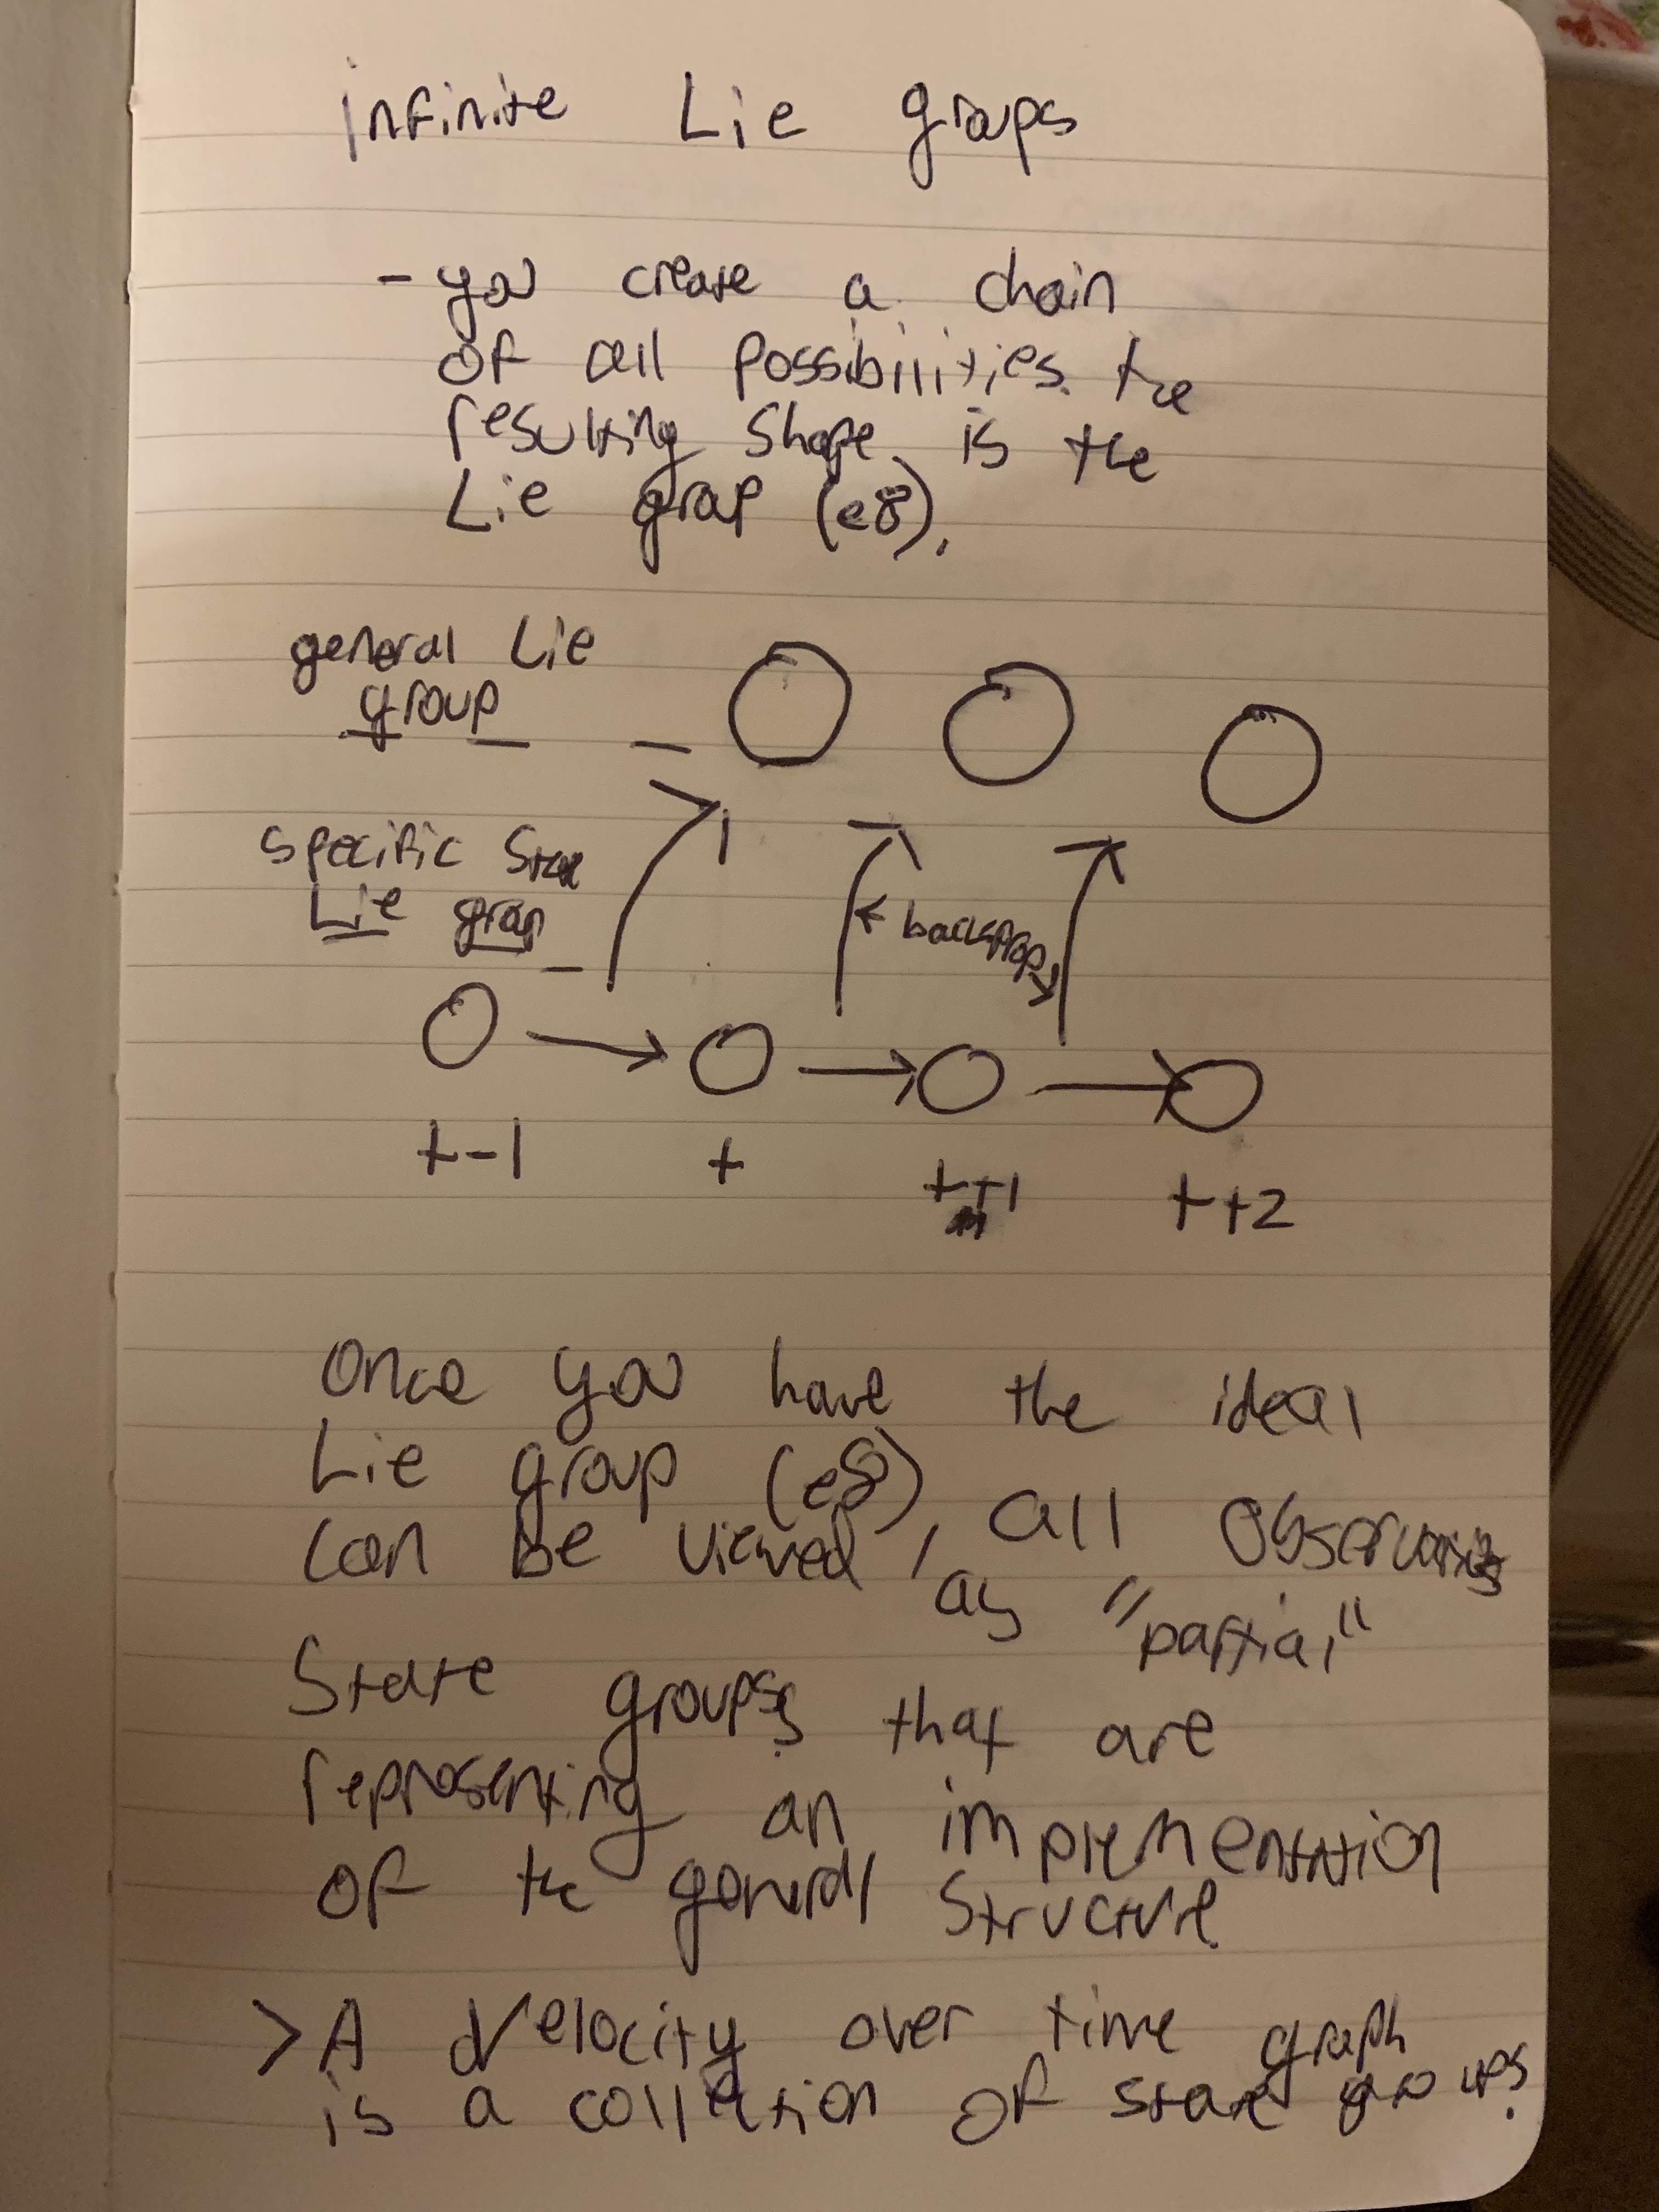 infinite Lie groups
- you create a chain
of all possibilities. the
resulting shape is the
Lie group (e8).
general Lie
group
specific state
Lie group
backprop
t-1
t
t+1
t+2
Once you have the ideal
Lie group (e8), all observations
can be viewed as "partial"
state groups that are
representing an implementation
of the general structure.
> A velocity over time graph
is a collection of state groups.